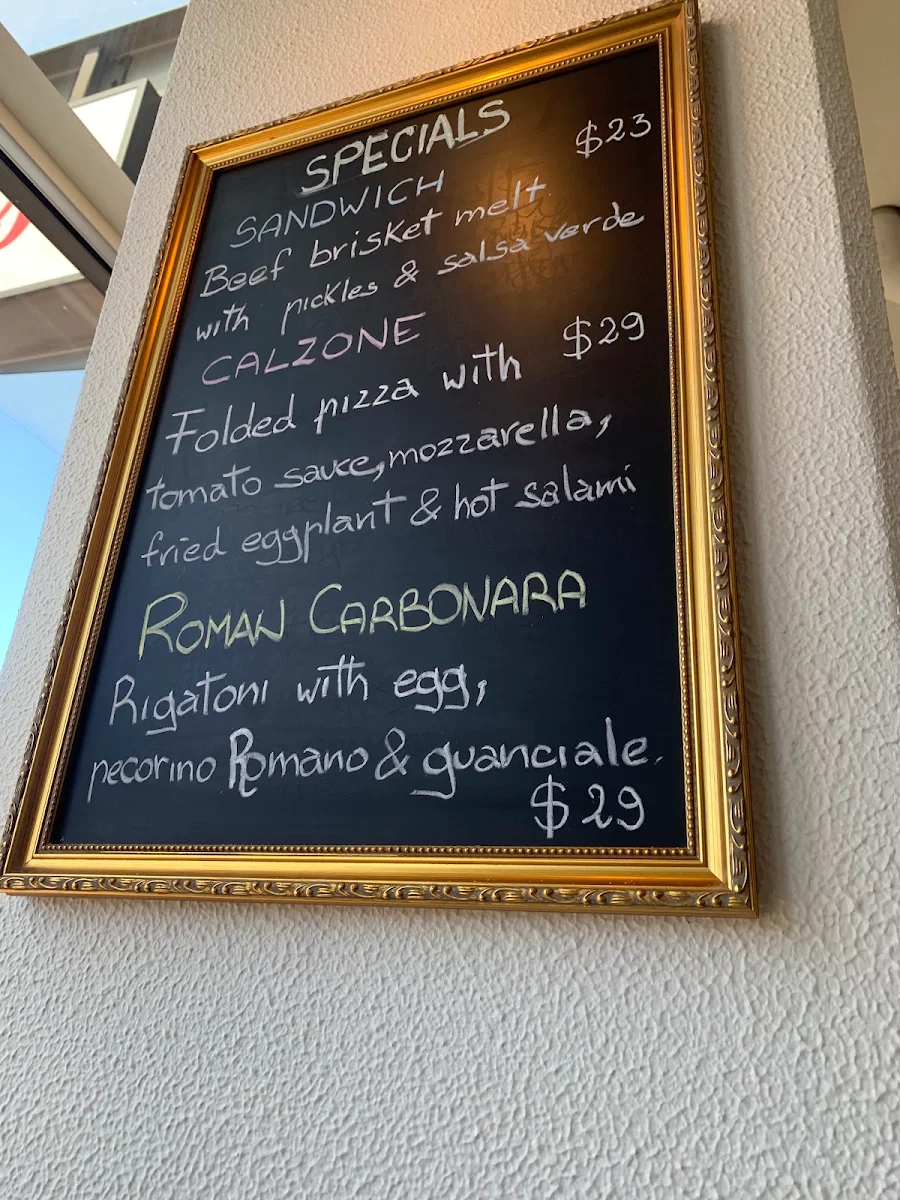 SPECIALS
SANDWICH $23
Beef brisket melt
with pickles & salsa verde
CALZONE
Folded pizza with $29
tomato sauce, mozzarella,
fried eggplant & hot salami
ROMAN CARBONARA
Rigatoni with egg,
pecorino Romano & guanciale.
$29